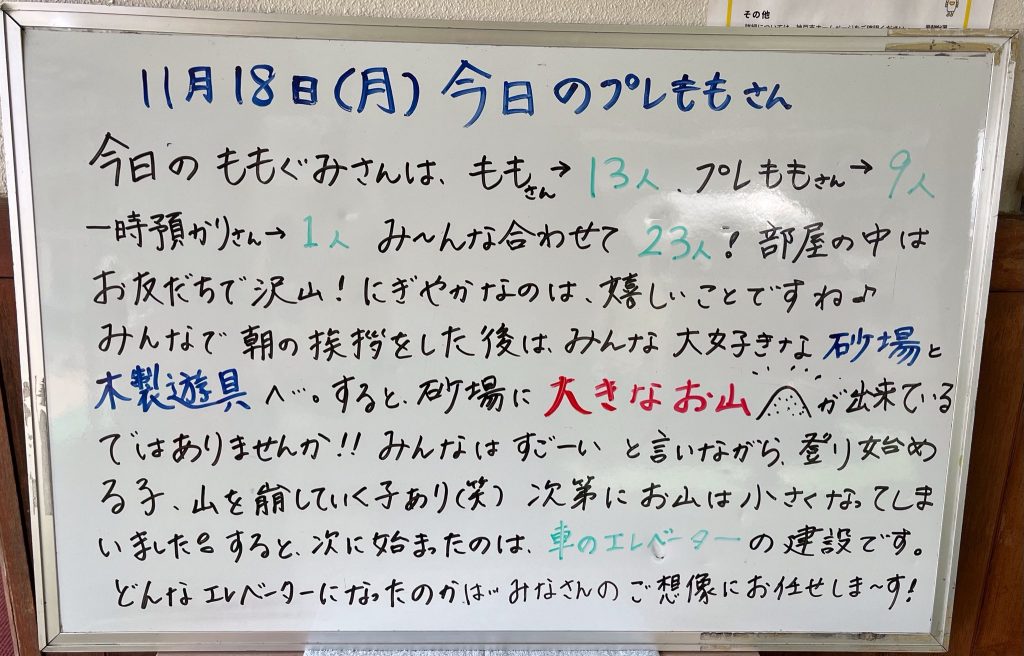 その他
11月18日(月)今日のプレももさん
今日のももぐみさんは、ももさん→13人、プレももさん→9人
一時預かりさん→1人 み~んな合わせて23人!部屋の中は
お友だちで沢山!にぎやかなのは、嬉しいことですね♪
みんなで朝の挨拶をした後は、みんな大好きな砂場と
木製遊具へ…。すると、砂場に大きなお山が出来ている
ではありませんか!!みんなはすごーいと言いながら、登り始め
る子、山を崩していく子あり(笑)次第にお山は小さくなってしま
いました。すると、次に始まったのは、車のエレベーターの建設です。
どんなエレベーターになったのかは…みなさんのご想像にお任せしま~す!